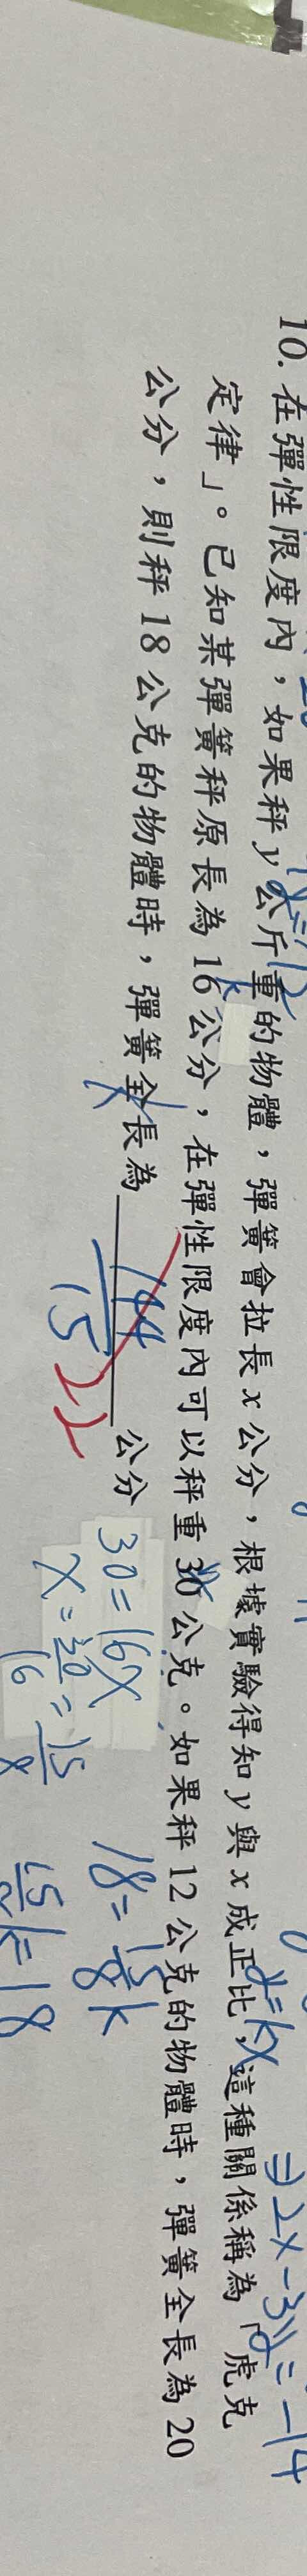 10. 在彈性限度內，如果秤 y 公斤重的物體，彈簧會拉長 x 公分，根據實驗得知 y 與 x 成正比，這種關係稱為「虎克
定律」。已知某彈簧秤原長為 16 公分，在彈性限度內可以秤重 30 公克。如果秤 12 公克的物體時，彈簧全長為 20
公分，則秤 18 公克的物體時，彈簧全長為
公分
y=kx
⇒2x-3y=-14
144
15
22
30=16x
x=30/16=15/8
18=15/8k
15/8k=18